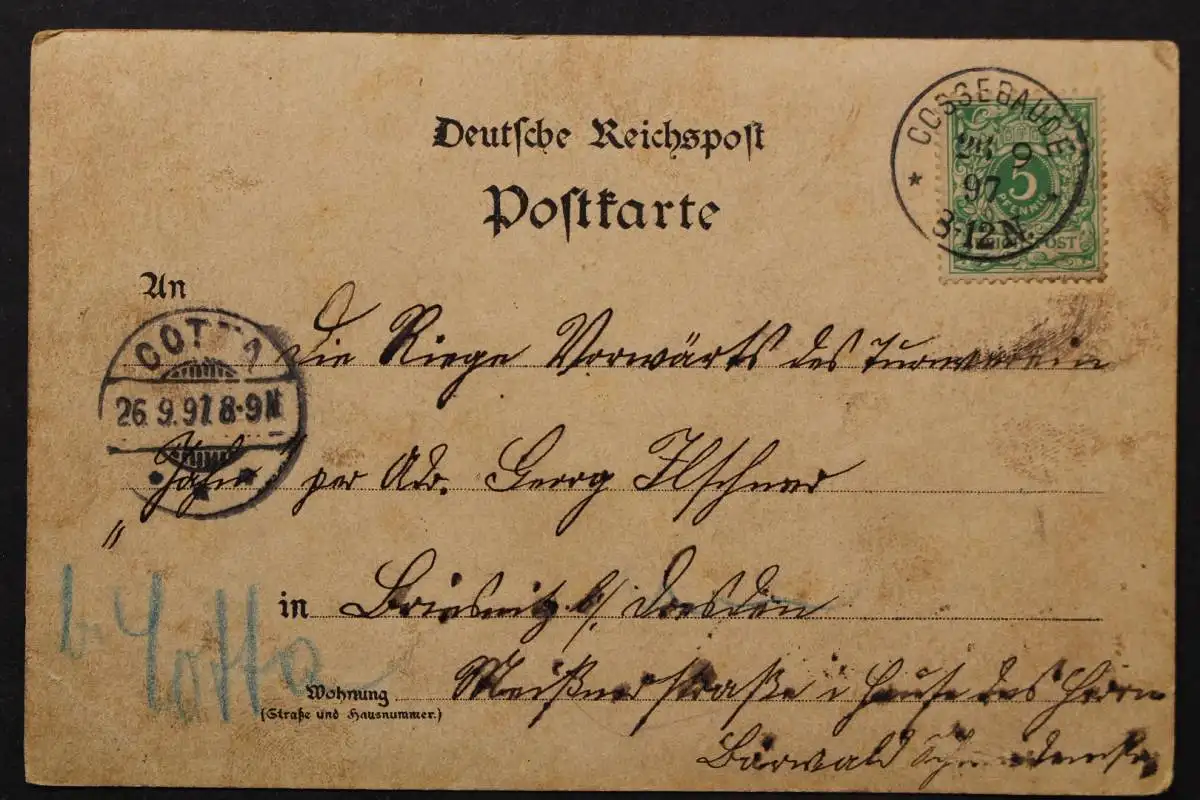 Deutsche Reichspost
Postkarte
COSSEBAUDE
26 9
97
8-12 N.
5
PFENNIG
REICHSPOST
An
COTTA
26. 9. 97. 8-9N
die Riege Vorwärts des Turnverein
„Jahn“ per Adr. Georg Ilschner
in Briesnitz b/ Dresden
b. Cotta
Wohnung
(Straße und Hausnummer.)
Meißnerstraße i Hause des Herrn
Bärwald